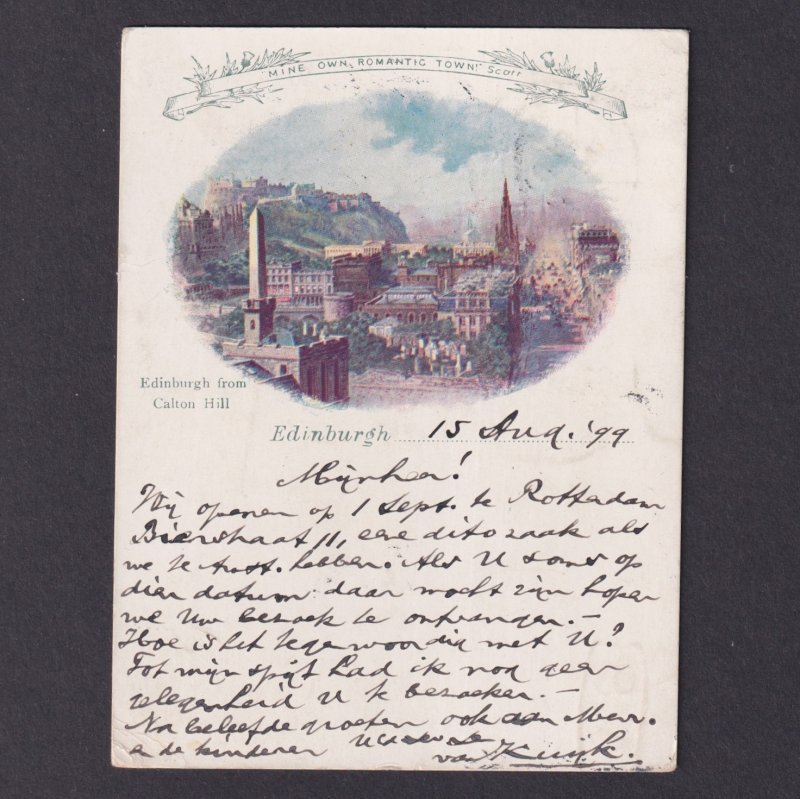 "MINE OWN ROMANTIC TOWN!" Scott
Edinburgh from
Calton Hill
Edinburgh 15 Aug. '99
Mijnheer!
Wij openen op 1 Sept. te Rotterdam
Bierstraat 11, eene dito zaak als
we te Amst. hebben. Als U soms op
dien datum daar mocht zijn hopen
we Uw bezoek te ontvangen.—
Hoe is het tegenwoordig met U?
Tot mijn spijt had ik nog geen
gelegenheid U te bezoeken.—
Na beleefde groeten ook aan Mevr.
e de kinderen
van Kuijk.